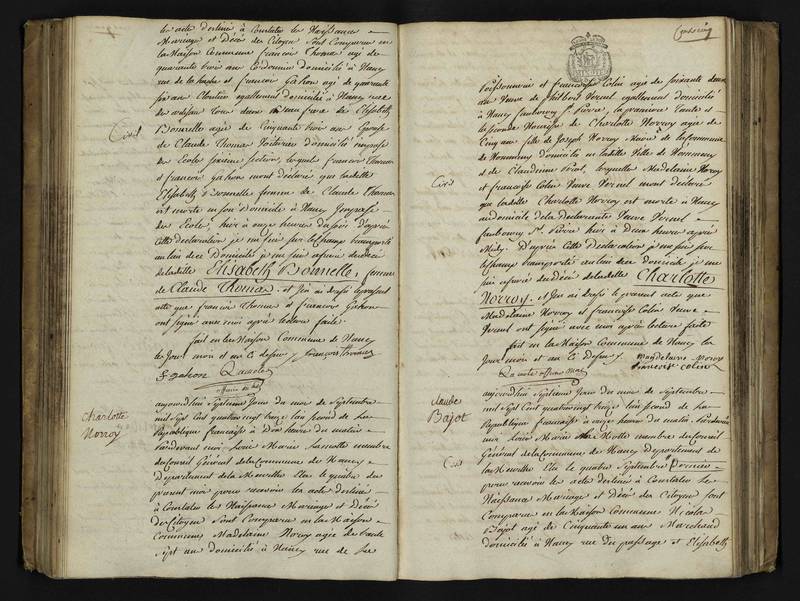 les acte destiné à Constater les Naissance
Mariage et Décé des Citoyen Sont Comparue en
la Maison Commune francois Thoma agé de
quarante trois ans Cordonnier domicilié à Nancy
rue de la hache et francois Gahon agé de quarante
six ans Cloutier egallement domicilié à Nancy rue
Civil
Bonnelle agée de Cinquante trois ans Epouse
de Claude Thomas Voiturier domicilié impasse
des Ecole Sixieme Section, lesquels francois Thomas
et francois Gahon m'ont déclaré que ladite
Elisabeth Bonnelle femme de Claude Thomas
est morte en son domicile à Nancy Impasse
des Ecole, hier à onze heures du soir d'après
Cette déclaration je me suis sur le Champ transporté
au lieu de ce domicile je me suis assuré du décé
de ladite Elisabeth Bonnelle, femme
de Claude Thomas, et J'en ai dressé le present
acte que francois Thoma et francois Gahon
ont signé avec moi après lecture faite
fait en la Maison Commune de Nancy
les Jour mois et an Ci dessus francois thomas
f gahon
Charlotte
Norroy
aujourd'hui Septieme Jour du mois de Septembre
mil Sept Cent quatre vingt treize l'an second de la
Republique francaise à dix heure du matin
Pardevant moi Louis Marie Lamotte membre
du Conseil Général de la Commune de Nancy
Departement de la Meurthe Elu le quatre du
present mois pour recevoir les acte destiné
à Constater les Naissance Mariage et Décé
des Citoyen Sont Comparue en la Maison
Commune Madelaine Norroy agée de trente
Sept ans domiciliée à Nancy rue de la
Poissonnerie et francoise Colin agée de soixante deux
ans Veuve de Philbert Vernel egallement domicilié
à Nancy faubourg St pierre, la premiere Tante et
la seconde Nourisse de Charlotte Norroy agée de
Cinq ans fille de Joseph Norroy
de Nommeny domicilié en ladite Ville de Nommeny
Civil
et de Claudinne lesquelle Madelaine Norroy
et francoise Colin Veuve Vernel m'ont déclaré
que ladite Charlotte Norroy est morte à Nancy
au domicile de la déclarante Veuve Vernel
faubourg St. pierre hier à Deux heure après
Midy. D'après Cette déclaration je me suis sur
le champ transporté au lieu de ce domicile je me
suis assuré du décé de ladite Charlotte
Norroy, et J'en ai dressé le present acte que
Madelaine Norroy et francoise Colin Veuve
Vernel ont signé avec moi après lecture faite
fait en la Maison Commune de Nancy les
Jour mois et an Ci dessus Magdelaine Norroy
francoise Colin
Claude
Bajot
aujourd'hui Septieme Jour du mois de Septembre
mil Sept Cent quatre vingt treize l'an second de la
Republique francaise à onze heure du matin Pardevant
moi Louis Marie La Motte membre du Conseil
Général de la Commune de Nancy Departement de
Civil
la Meurthe Elu le quatre Septembre
pour recevoir les acte destiné à Constater les
Naissance Mariage et Décé des Citoyen sont
Comparue en la Maison Commune Nicolas
Bajot agé de Cinquante un ans Marchand
domicilié à Nancy rue du passage et Elisabeth